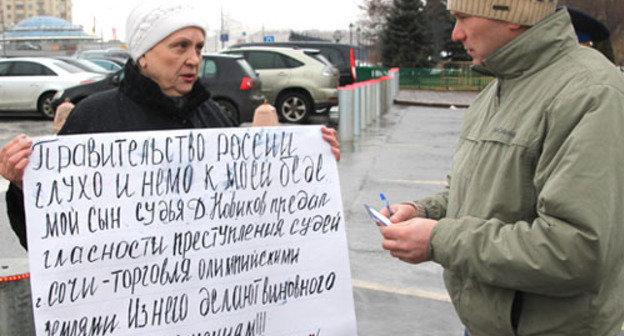 Правительство россии
глухо и немо к моей беде
мой сын. судья Д. Новиков предал
гласности преступления судей
г. Сочи-торговля олимпийскими
землями. Из него делают виновного
!!!